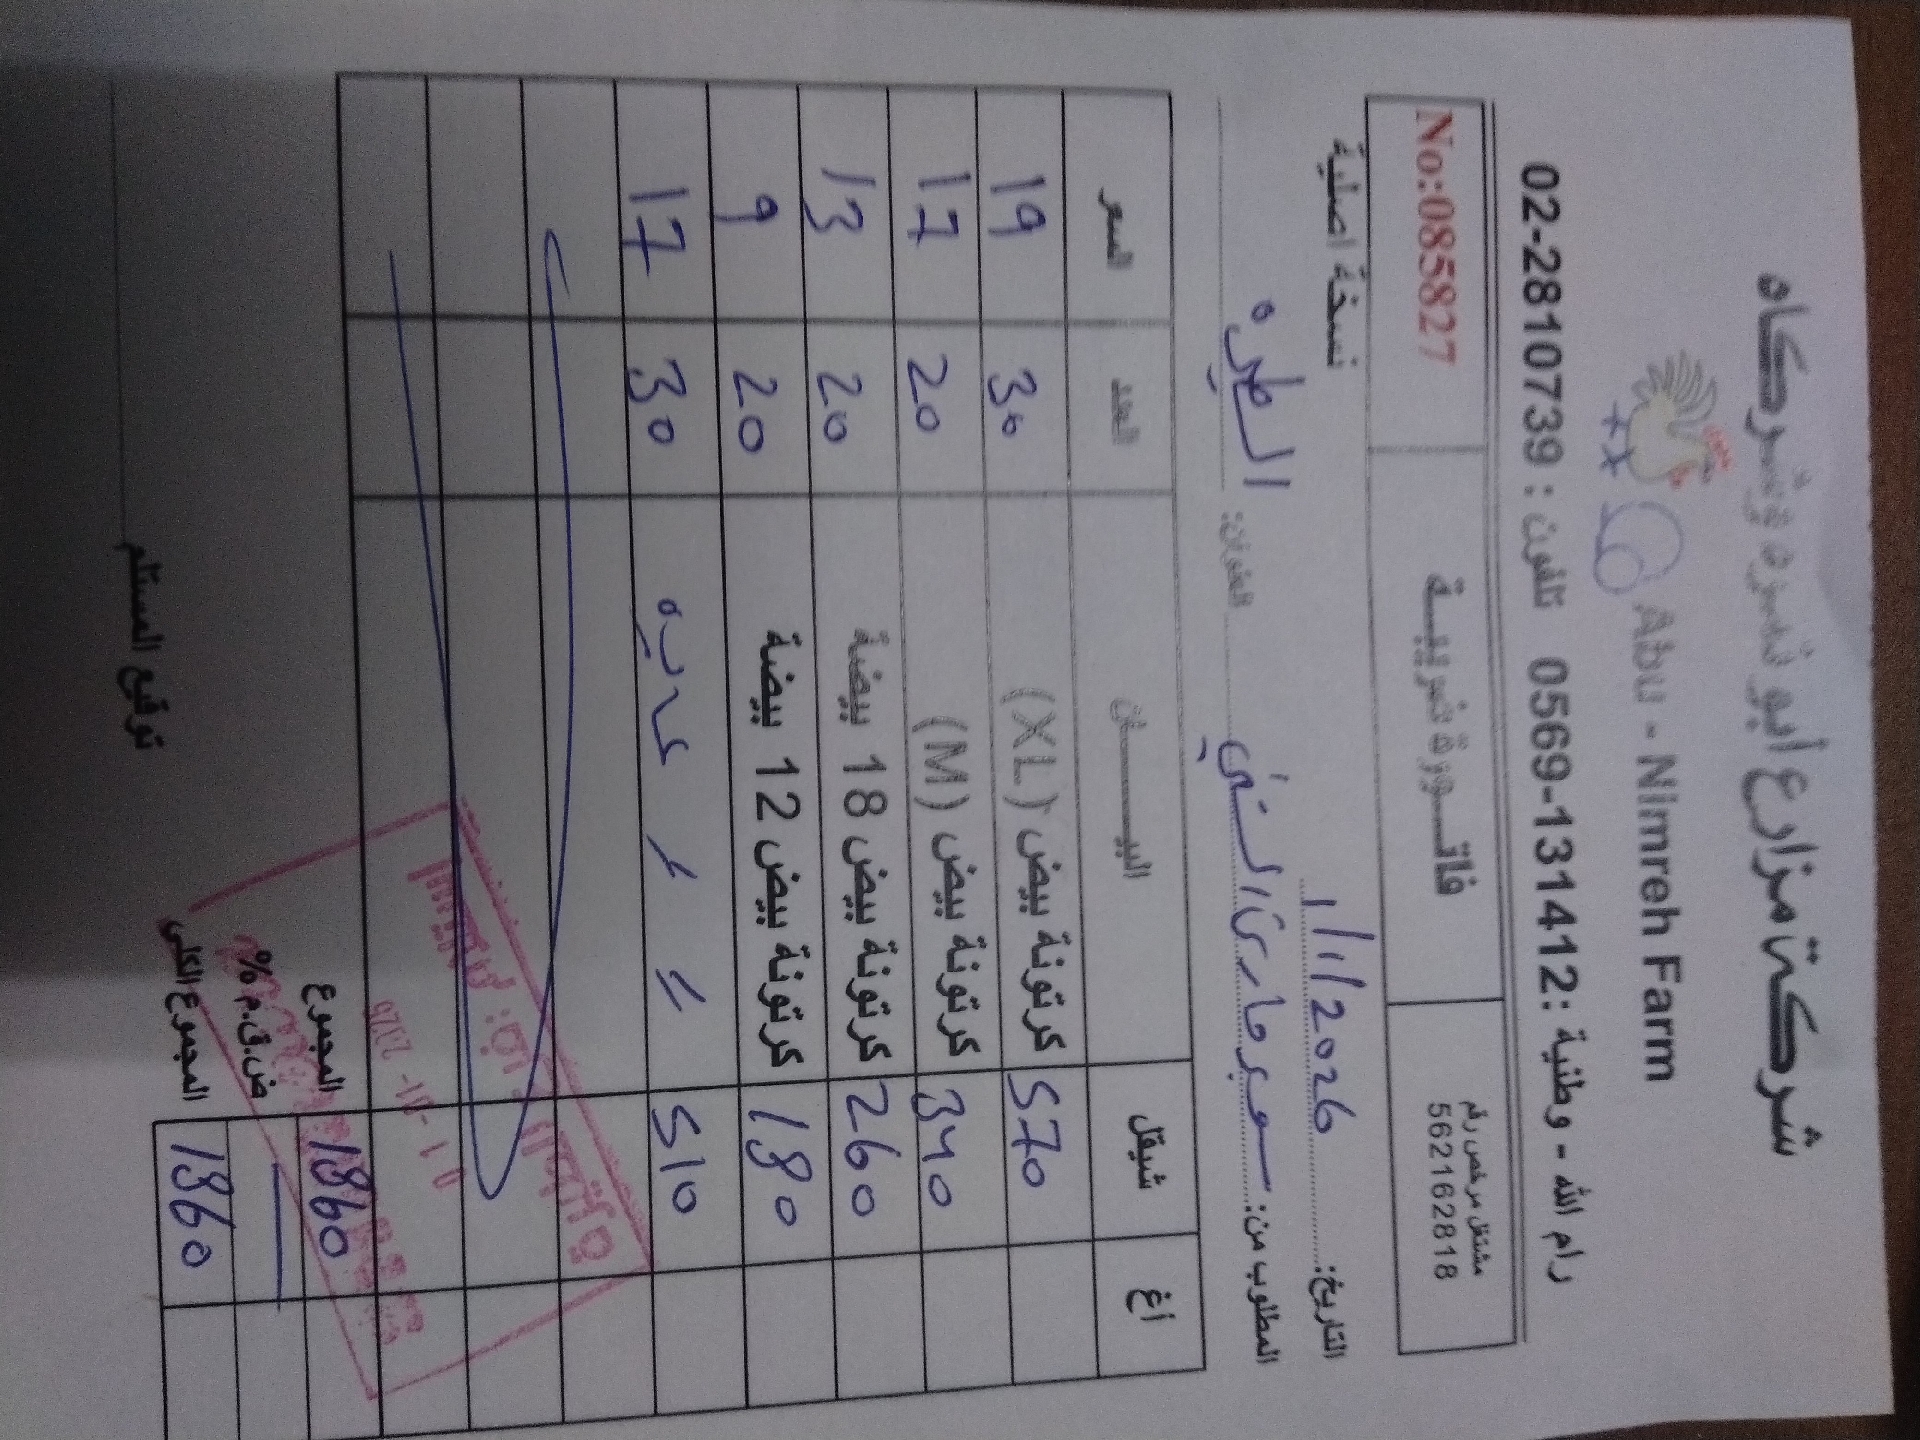 شركة مزارع أبو نمره وشركاه
Abu - Nimreh Farm
رام الله - وطنية :0569-131412 تلفون : 02-2810739
مشتغل مرخص رقم
562162818
فاتورة ضريبية
No:085827
التاريخ: 1/1/2026
نسخة اصلية
المطلوب من: سوبر ماركت
العنوان: الطيره
أغ شيقل البيـــــان العدد السعر
570 كرتونة بيض (XL) 30 19
340 كرتونة بيض (M) 20 17
260 كرتونة بيض 18 بيضة 20 13
180 كرتونة بيض 12 بيضة 20 9
510 30 17
المجموع 1860
ض.ق.م %
المجموع الكلي 1860
توقيع المستلم